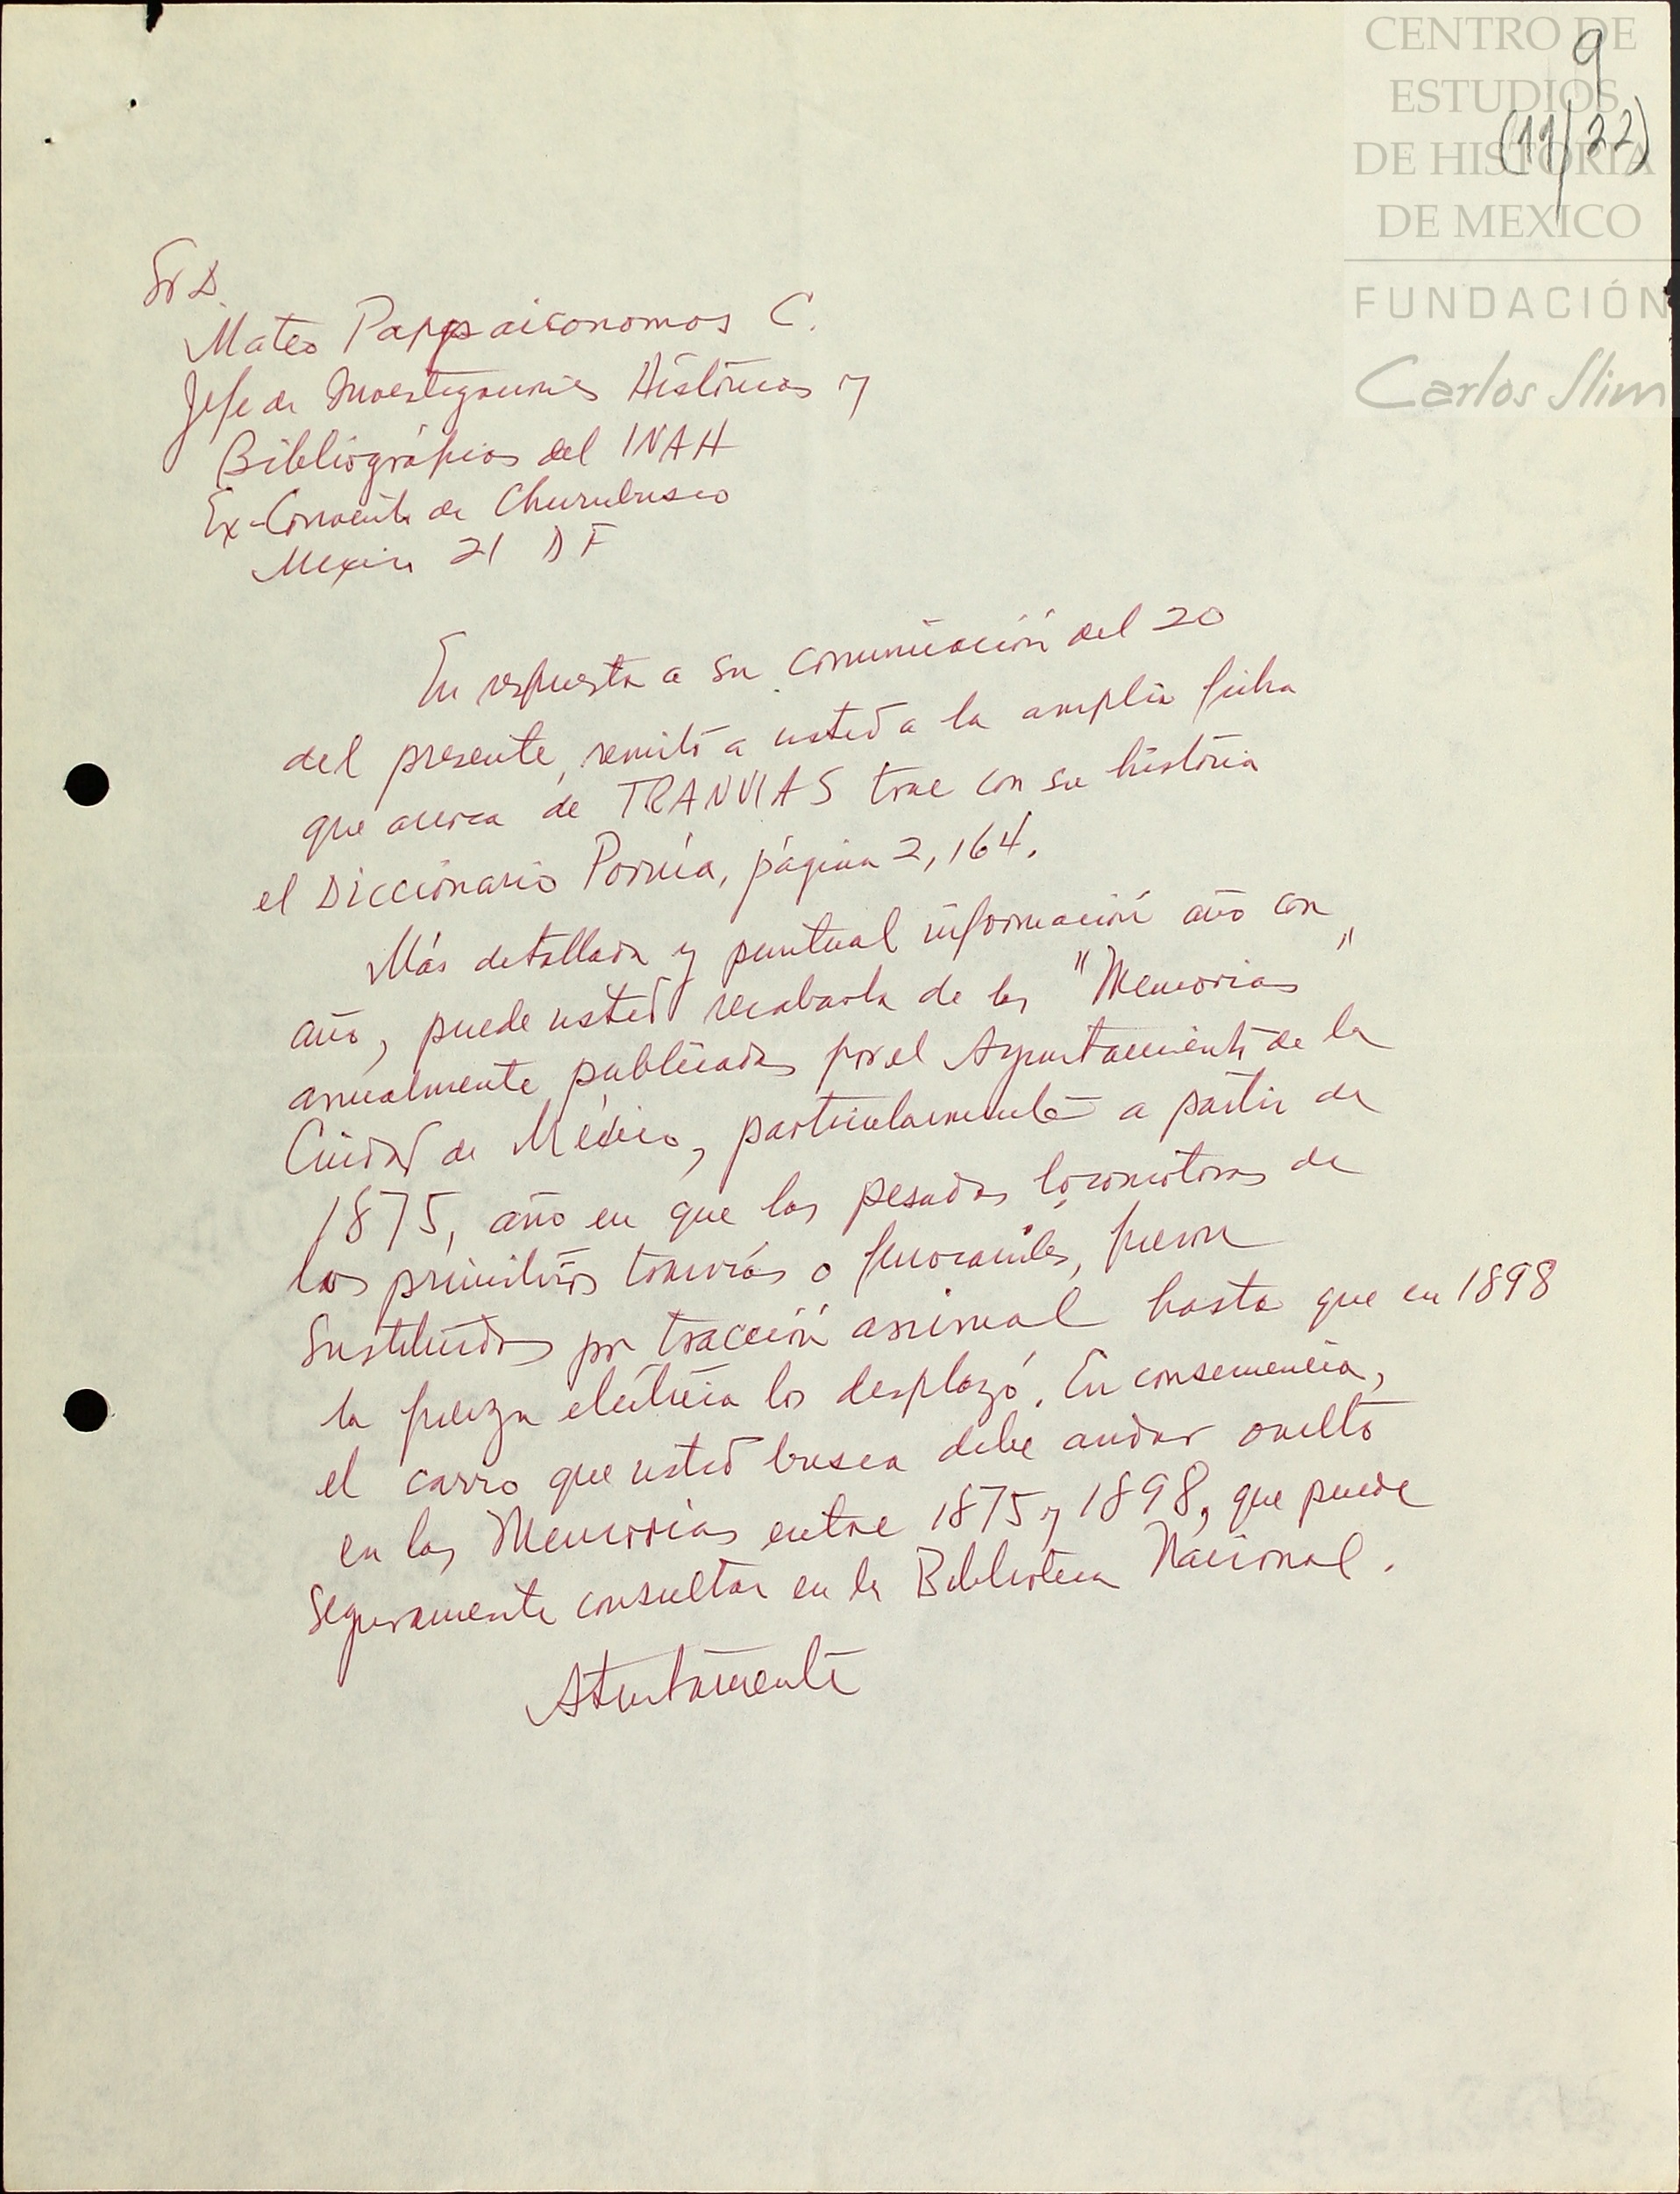 CENTRO DE
ESTUDIOS
DE HISTORIA
DE MEXICO
FUNDACIÓN
Carlos Slim
9
(11/22)
Sr D.
Mateo Pappaiconomos C.
Jefe de Investigaciones Históricas y
Bibliográficas del INAH
Ex-Convento de Churubusco
Mexico 21 D F
En respuesta a su comunicación del 20
del presente, remito a usted a la amplia ficha
que acerca de TRANVIAS trae con su historia
el Diccionario Porrúa, página 2,164.
Más detallada y puntual información año con
año, puede usted recabarla de las "Memorias"
anualmente publicadas por el Ayuntamiento de la
Ciudad de México, particularmente a partir de
1875, año en que las pesadas locomotoras de
los primitivos tranvías o ferrocarriles, fueron
sustituídas por tracción animal hasta que en 1898
la fuerza eléctrica los desplazó. En consecuencia,
el carro que usted busca debe andar oculto
en las Memorias entre 1875 y 1898, que puede
seguramente consultar en la Biblioteca Nacional.
Atentamente